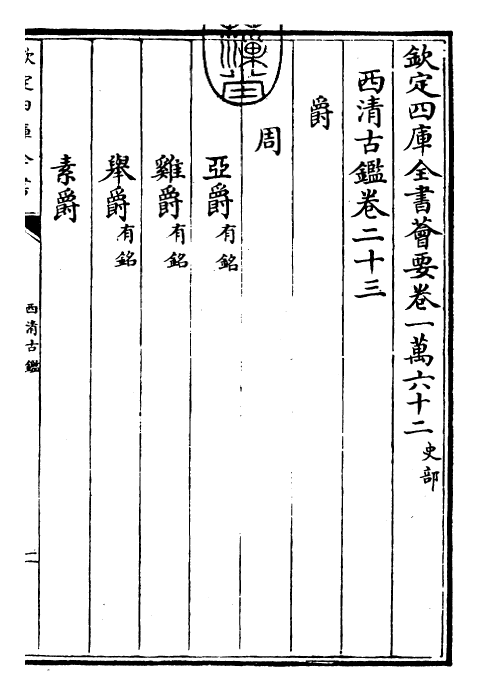 欽定四庫全書薈要卷一萬六十二 史部
西清古鑑卷二十三
爵
周
亞爵 有銘
雞爵 有銘
舉爵 有銘
素爵
西清古鑑